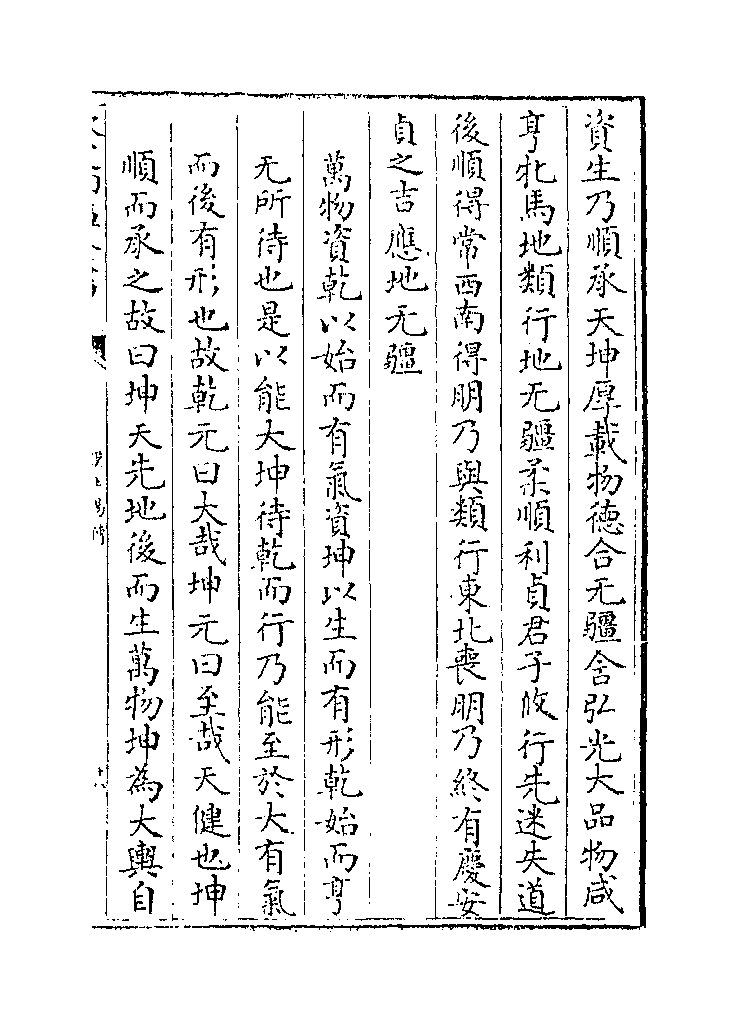 資生乃順承天坤厚載物德合无疆含弘光大品物咸
亨牝馬地類行地无疆柔順利貞君子攸行先迷失道
後順得常西南得朋乃與類行東北喪朋乃終有慶安
貞之吉應地无疆
萬物資乾以始而有氣資坤以生而有形乾始而亨
无所待也是以能大坤待乾而行乃能至於大有氣
而後有形也故乾元曰大哉坤元曰至哉天健也坤
順而承之故曰坤天先地後而生萬物坤為大輿自
漢上易傳
十八